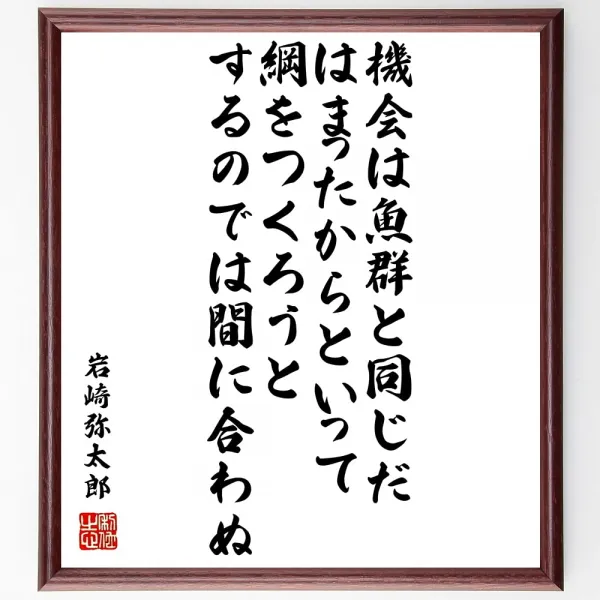 機会は魚群と同じだ
はまったからといって
綱をつくろうと
するのでは間に合わぬ
岩崎弥太郎